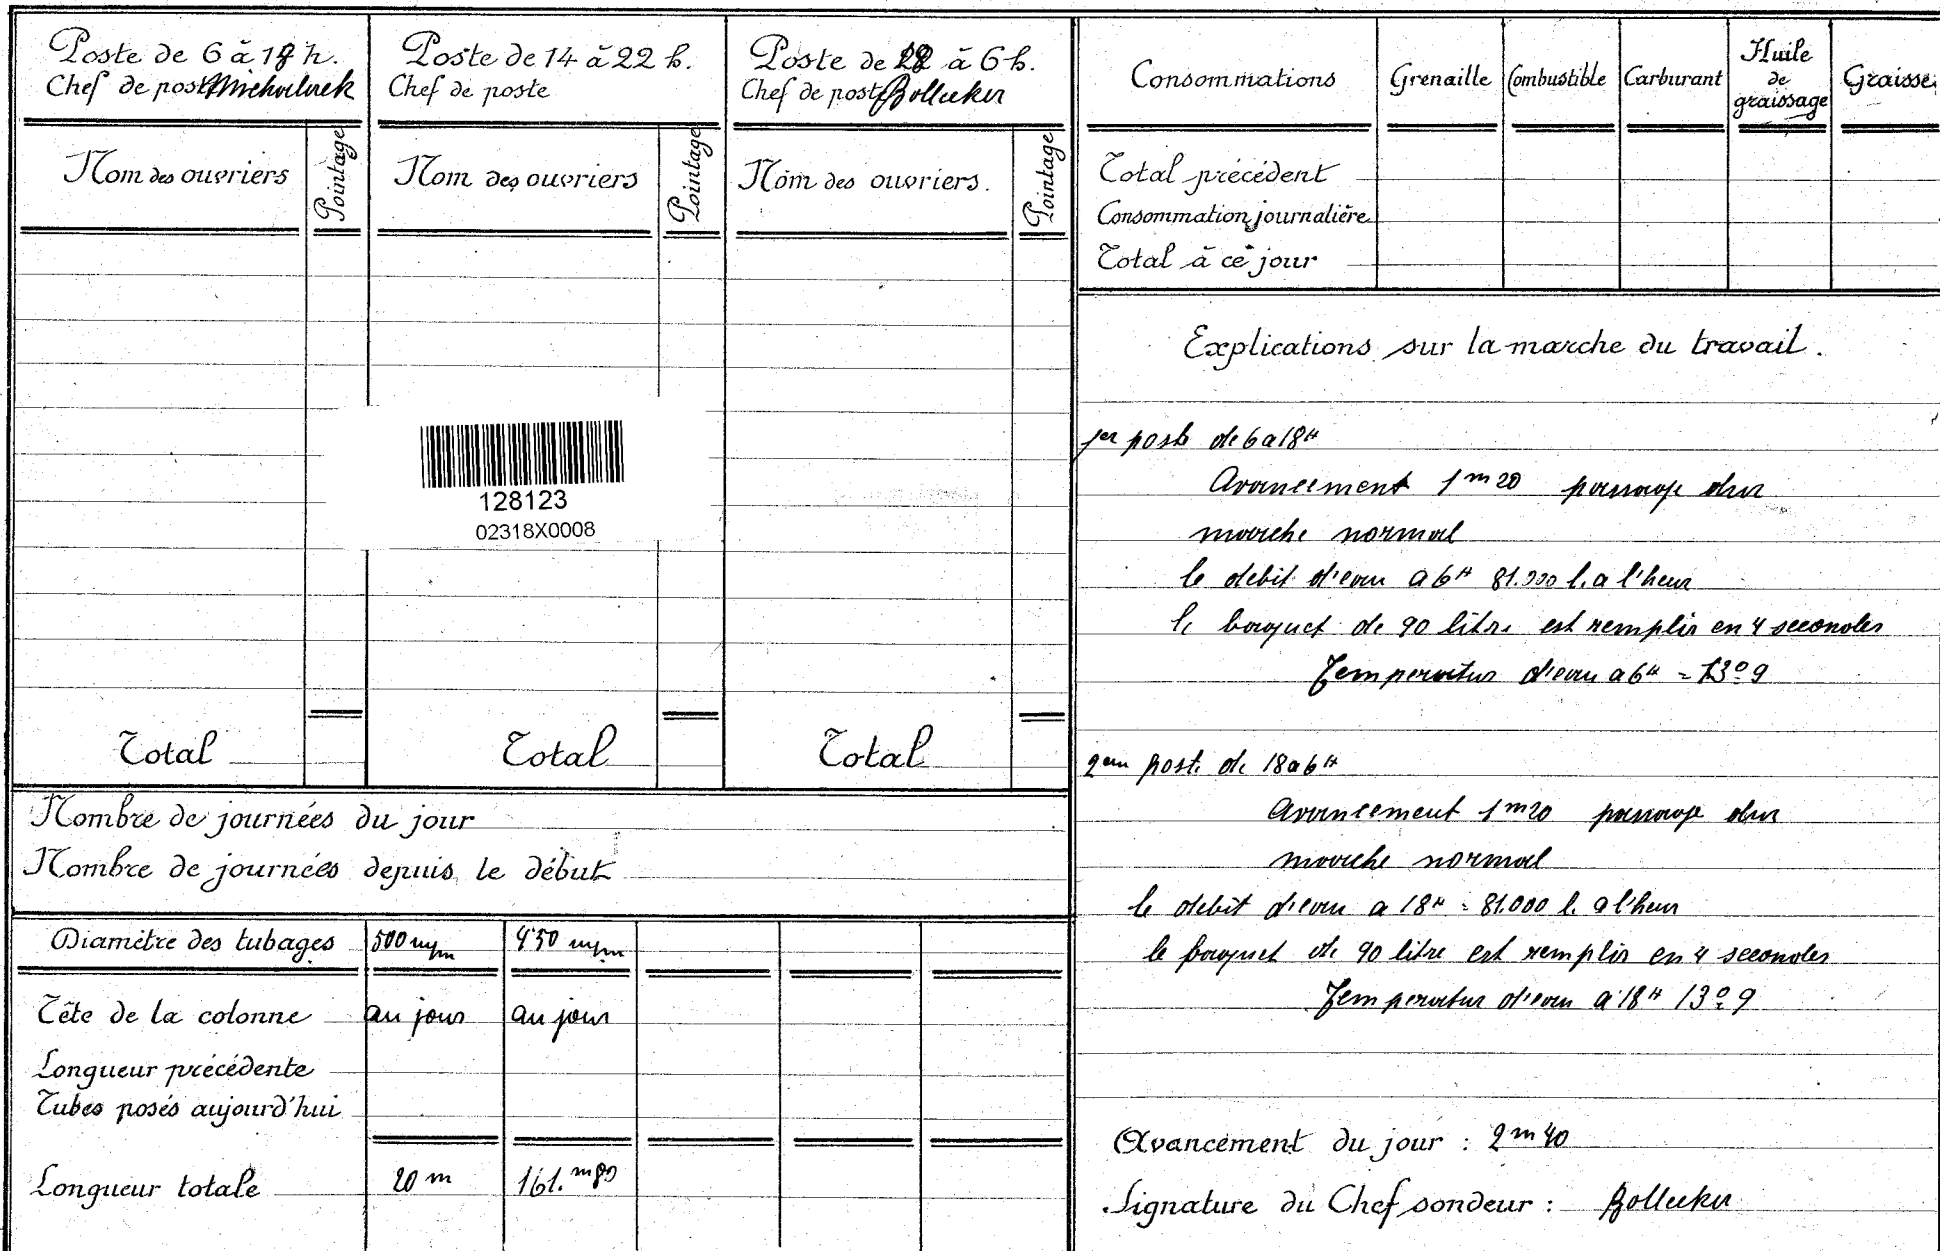 Poste de 6 à 18 h.
Chef de poste
Nom des ouvriers
Pointage
Total
Poste de 14 à 22 h.
Chef de poste
Nom des ouvriers
Pointage
Total
Poste de 18 à 6 h.
Chef de poste Bollecker
Nom des ouvriers.
Pointage
Total
128123
02318X0008
Nombre de journées du jour
Nombre de journées depuis le début
Diamètre des tubages 500 m/m 450 m/m
Tête de la colonne au jour au jour
Longueur précédente
Tubes posés aujourd'hui
Longueur totale 20 m 161.m
Consommations Grenaille Combustible Carburant Huile de graissage Graisse
Total précédent
Consommation journalière
Total à ce jour
Explications sur la marche du travail.
1er poste de 6 a 18H
Avancement 1m20 passage dur
marche normal
le debit d'eau a 6H 81.000 l. a l'heur
le baquet de 90 litre est remplir en 4 secondes
Temperatur d'eau a 6H = 13°9
2em post. de 18 a 6H
Avancement 1m20 passage dur
marche normal
le debit d'eau a 18H = 81.000 l. a l'heur
le baquet de 90 litre est remplir en 4 secondes
Temperatur d'eau a 18H 13°9
Avancement du jour : 2m40
Signature du Chef sondeur : Bollecker